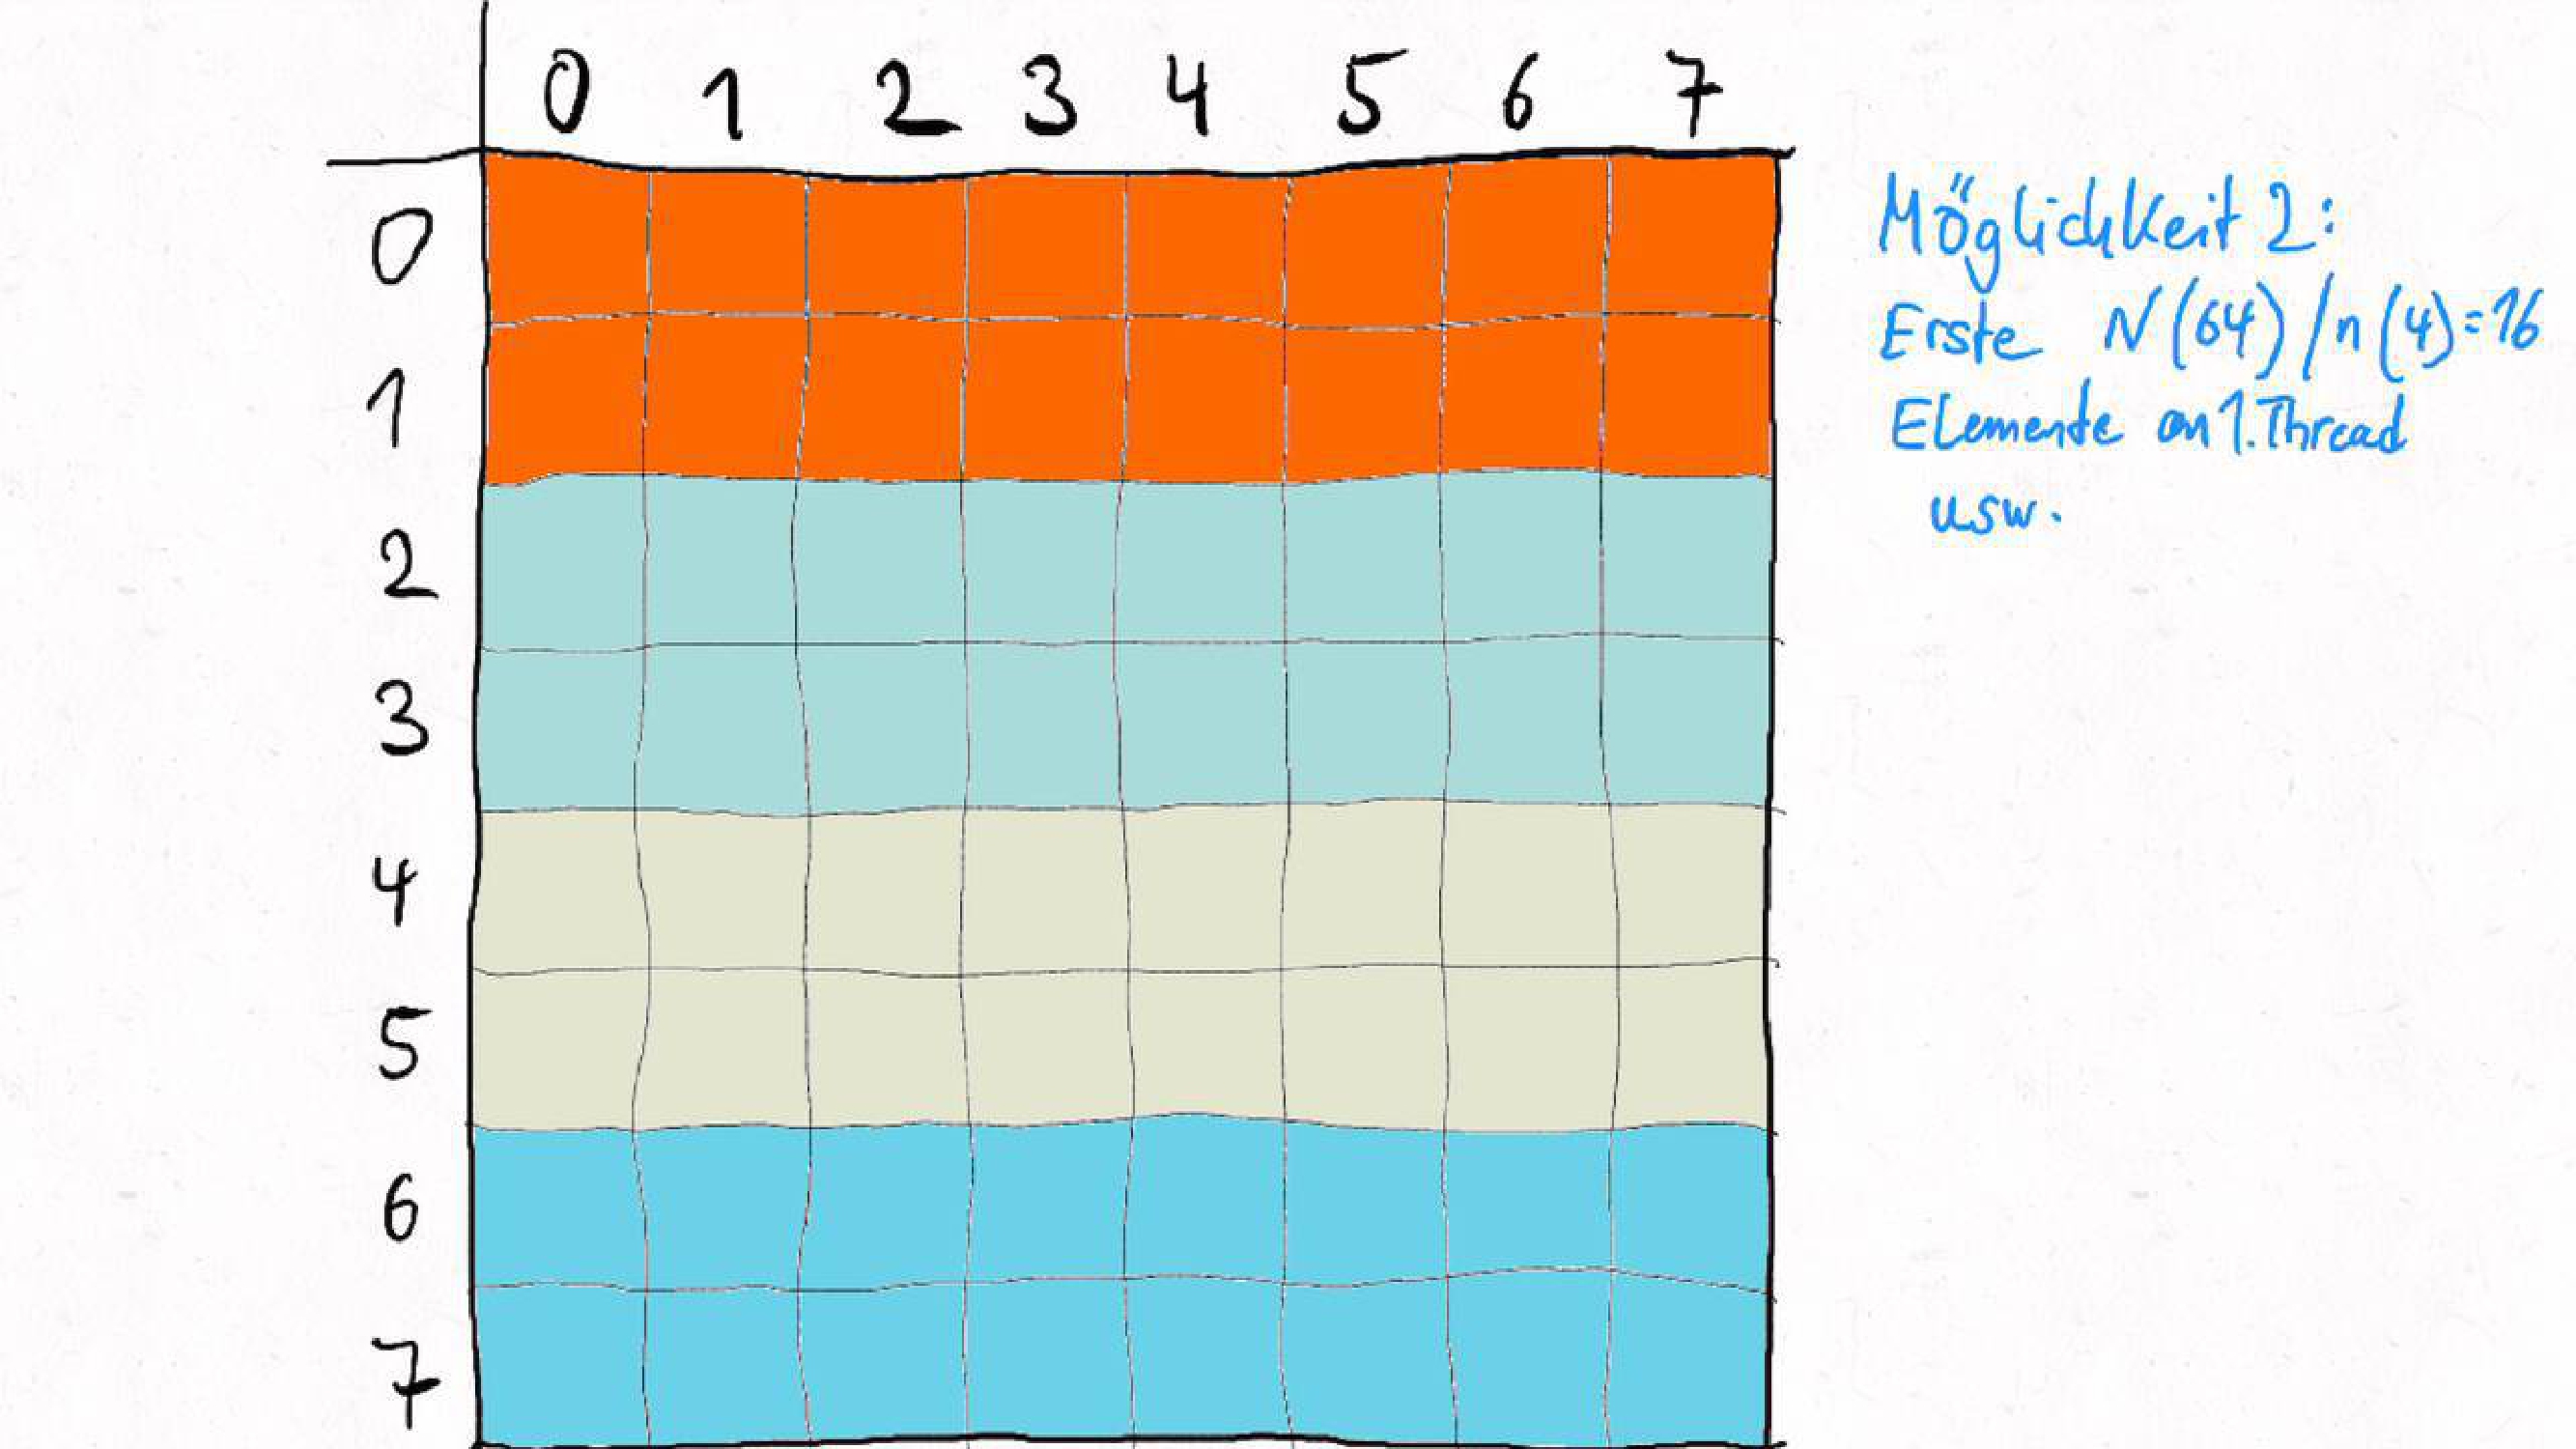 0 1 2 3 4 5 6 7
0
1
2
3
4
5
6
7
Möglichkeit 2:
Erste N(64)/n(4)=16
Elemente an 1. Thread
usw.